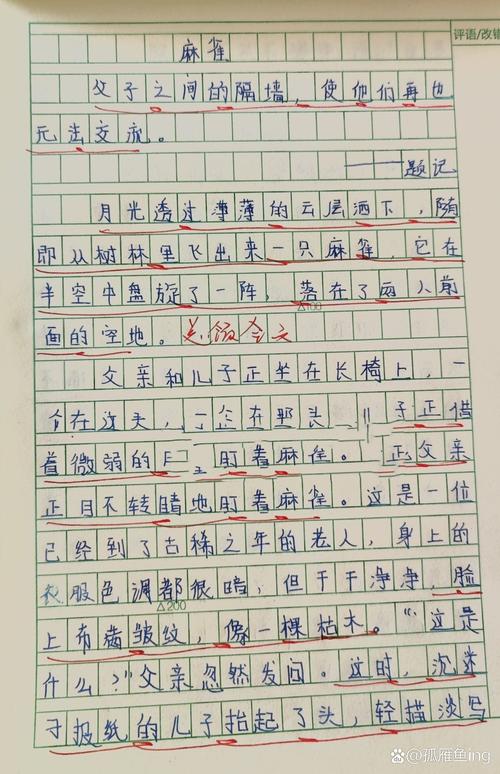 评语/改错
麻雀
父子之间的隔墙，使他们再也
无法交流。
——题记
月光透过薄薄的云层洒下，随
即从树林里飞出来一只麻雀，它在
半空中盘旋了一阵，落在了两人前
△100
面的空地。总领全文
父亲和儿子正坐在长椅上，一
个在这头，一个在那头
子正借
着微弱的月
盯着麻雀。 父亲
正目不转睛地盯着麻雀。这是一位
已经到了古稀之年的老人，身上的
衣服色调都很暗，但干干净净，脸
△200
上布满皱纹，像一棵枯木。“这是
什么？”父亲忽然发问。这时，沉迷
于报纸的儿子抬起了头，轻描淡写
@孤雁鱼ing